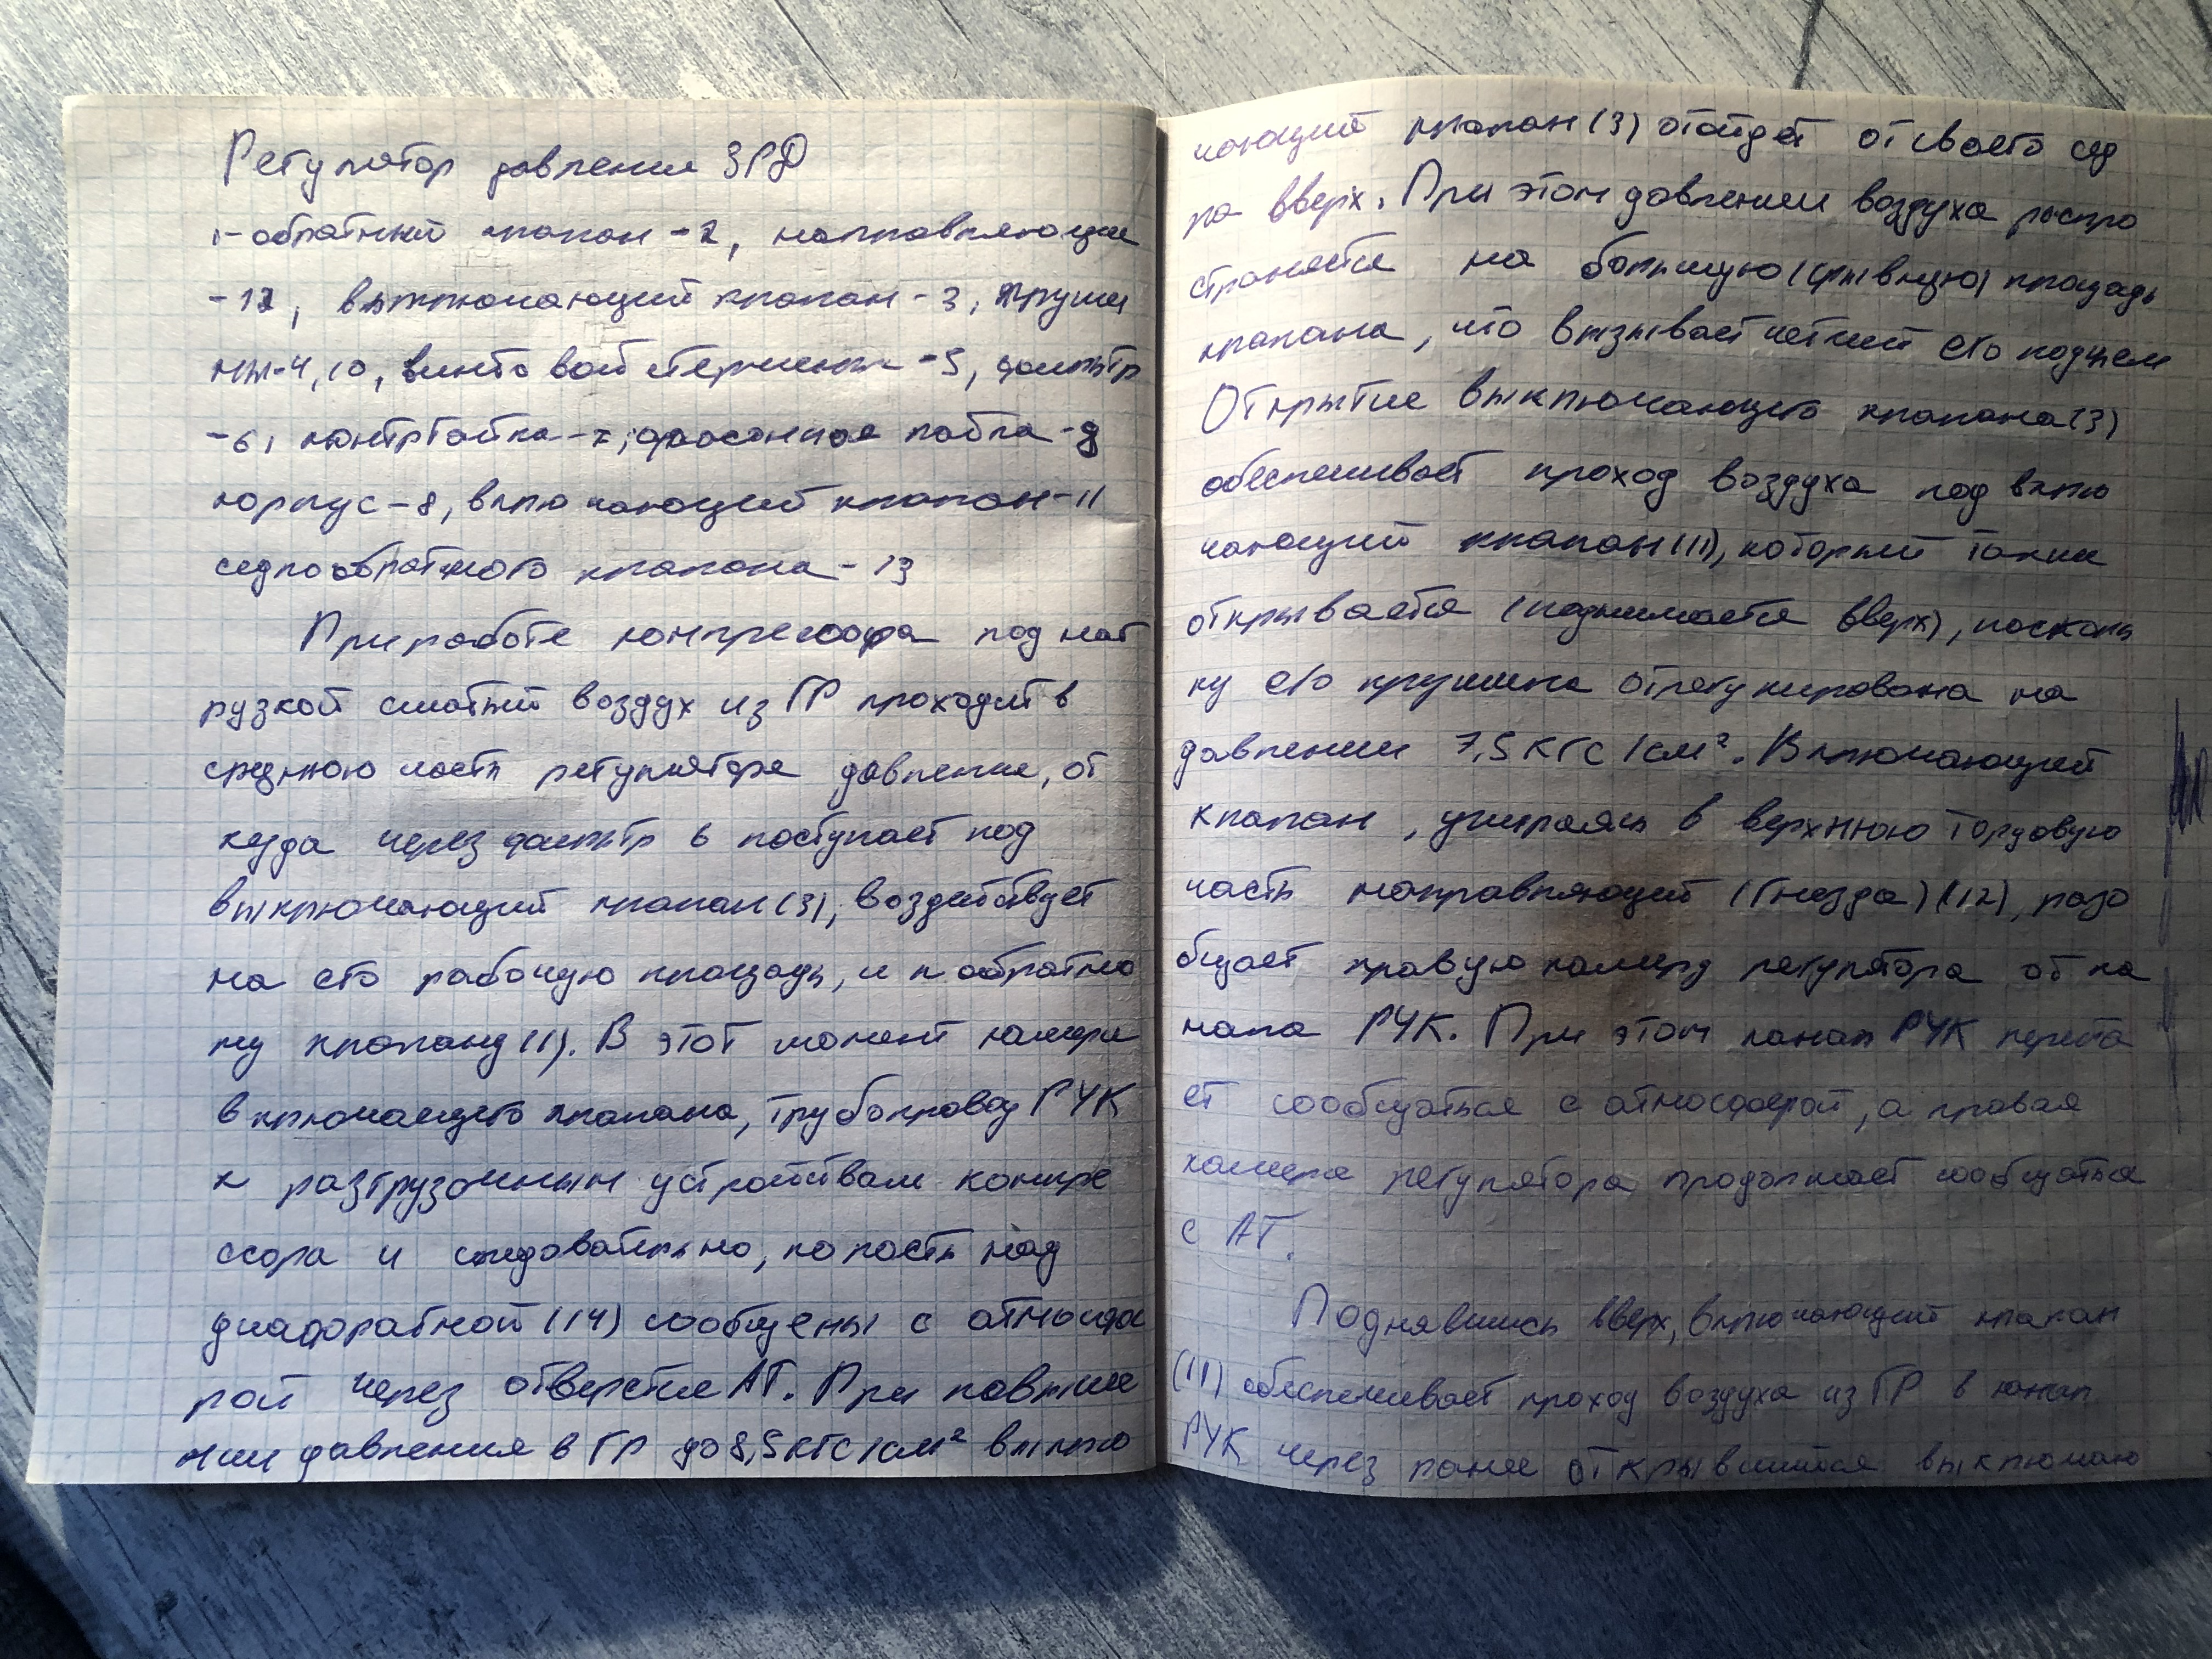 Регулятор давления ЗРД
1-обратный клапан -2, направляющие
-12, выключающий клапан -3, пружи
ны-4,10, винтовой стержень -5, фильтр
-6, контргайка-7, фасонная
корпус-8, включающий клапан-11
седло обратного клапана - 13
При работе компрессора под наг
рузкой сжатый воздух из ГР проходит в
среднюю часть регулятора давление, от
куда через фильтр 6 поступает под
выключающий клапан (3), воздействует
на его рабочую площадь, и к обратно
му клапану (1). В этот момент камера
включающего клапана, трубопровод РУК
к разгрузочным устройствам компре
ссора и следовательно, полость над
диафрагмой (14) сообщены с атмосфе
рой через отверстие АТ. При повыше
нии давления в ГР до 8,5 кгс/см² выклю
чающий клапан (3) отойдёт от своего сед
ла вверх. При этом давлении воздуха распро
страняется на большую (срывную) площадь
клапана, что вызывает четкий его подъем
Открытие выключающего клапана (3)
обеспечивает проход воздуха под вклю
чающий клапан (11), который также
открывается (поднимается вверх), посколь
ку его пружина отрегулирована на
давлении 7,5 КГС/см². Включающий
клапан, упираясь в верхнюю торцовую
часть направляющий (гнезда) (12), разо
бщает правую камеру регулятора от ка
нала РУК. При этом канал РУК переста
ёт сообщаться с атмосферой, а правая
камера регулятора продолжает сообщаться
с АТ.
Поднявшись вверх, включающий клапан
(11) обеспечивает проход воздуха из ГР в канал
РУК через ранее открывшийся выключаю